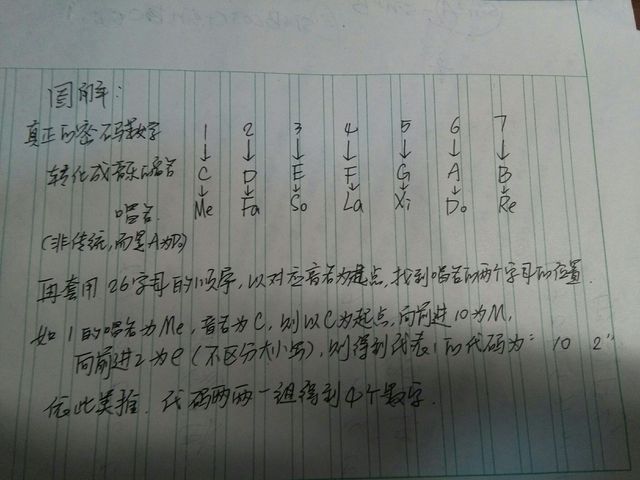 图解:
真正的密码数字 1 2 3 4 5 6 7
转化成音乐的音名 C D E F G A B
唱名. Me Fa So La Xi Do Re
(非传统,而是A为Do)
再套用26字母的顺序,以对应音名为起点,找到唱名的两个字母的位置.
如1的唱名为Me,音名为C,则以C为起点,向前进10为M,
向前进2为e(不区分大小写),则得到代表1的代码为"10 2"
依此类推.代码两两一组得到4个数字.